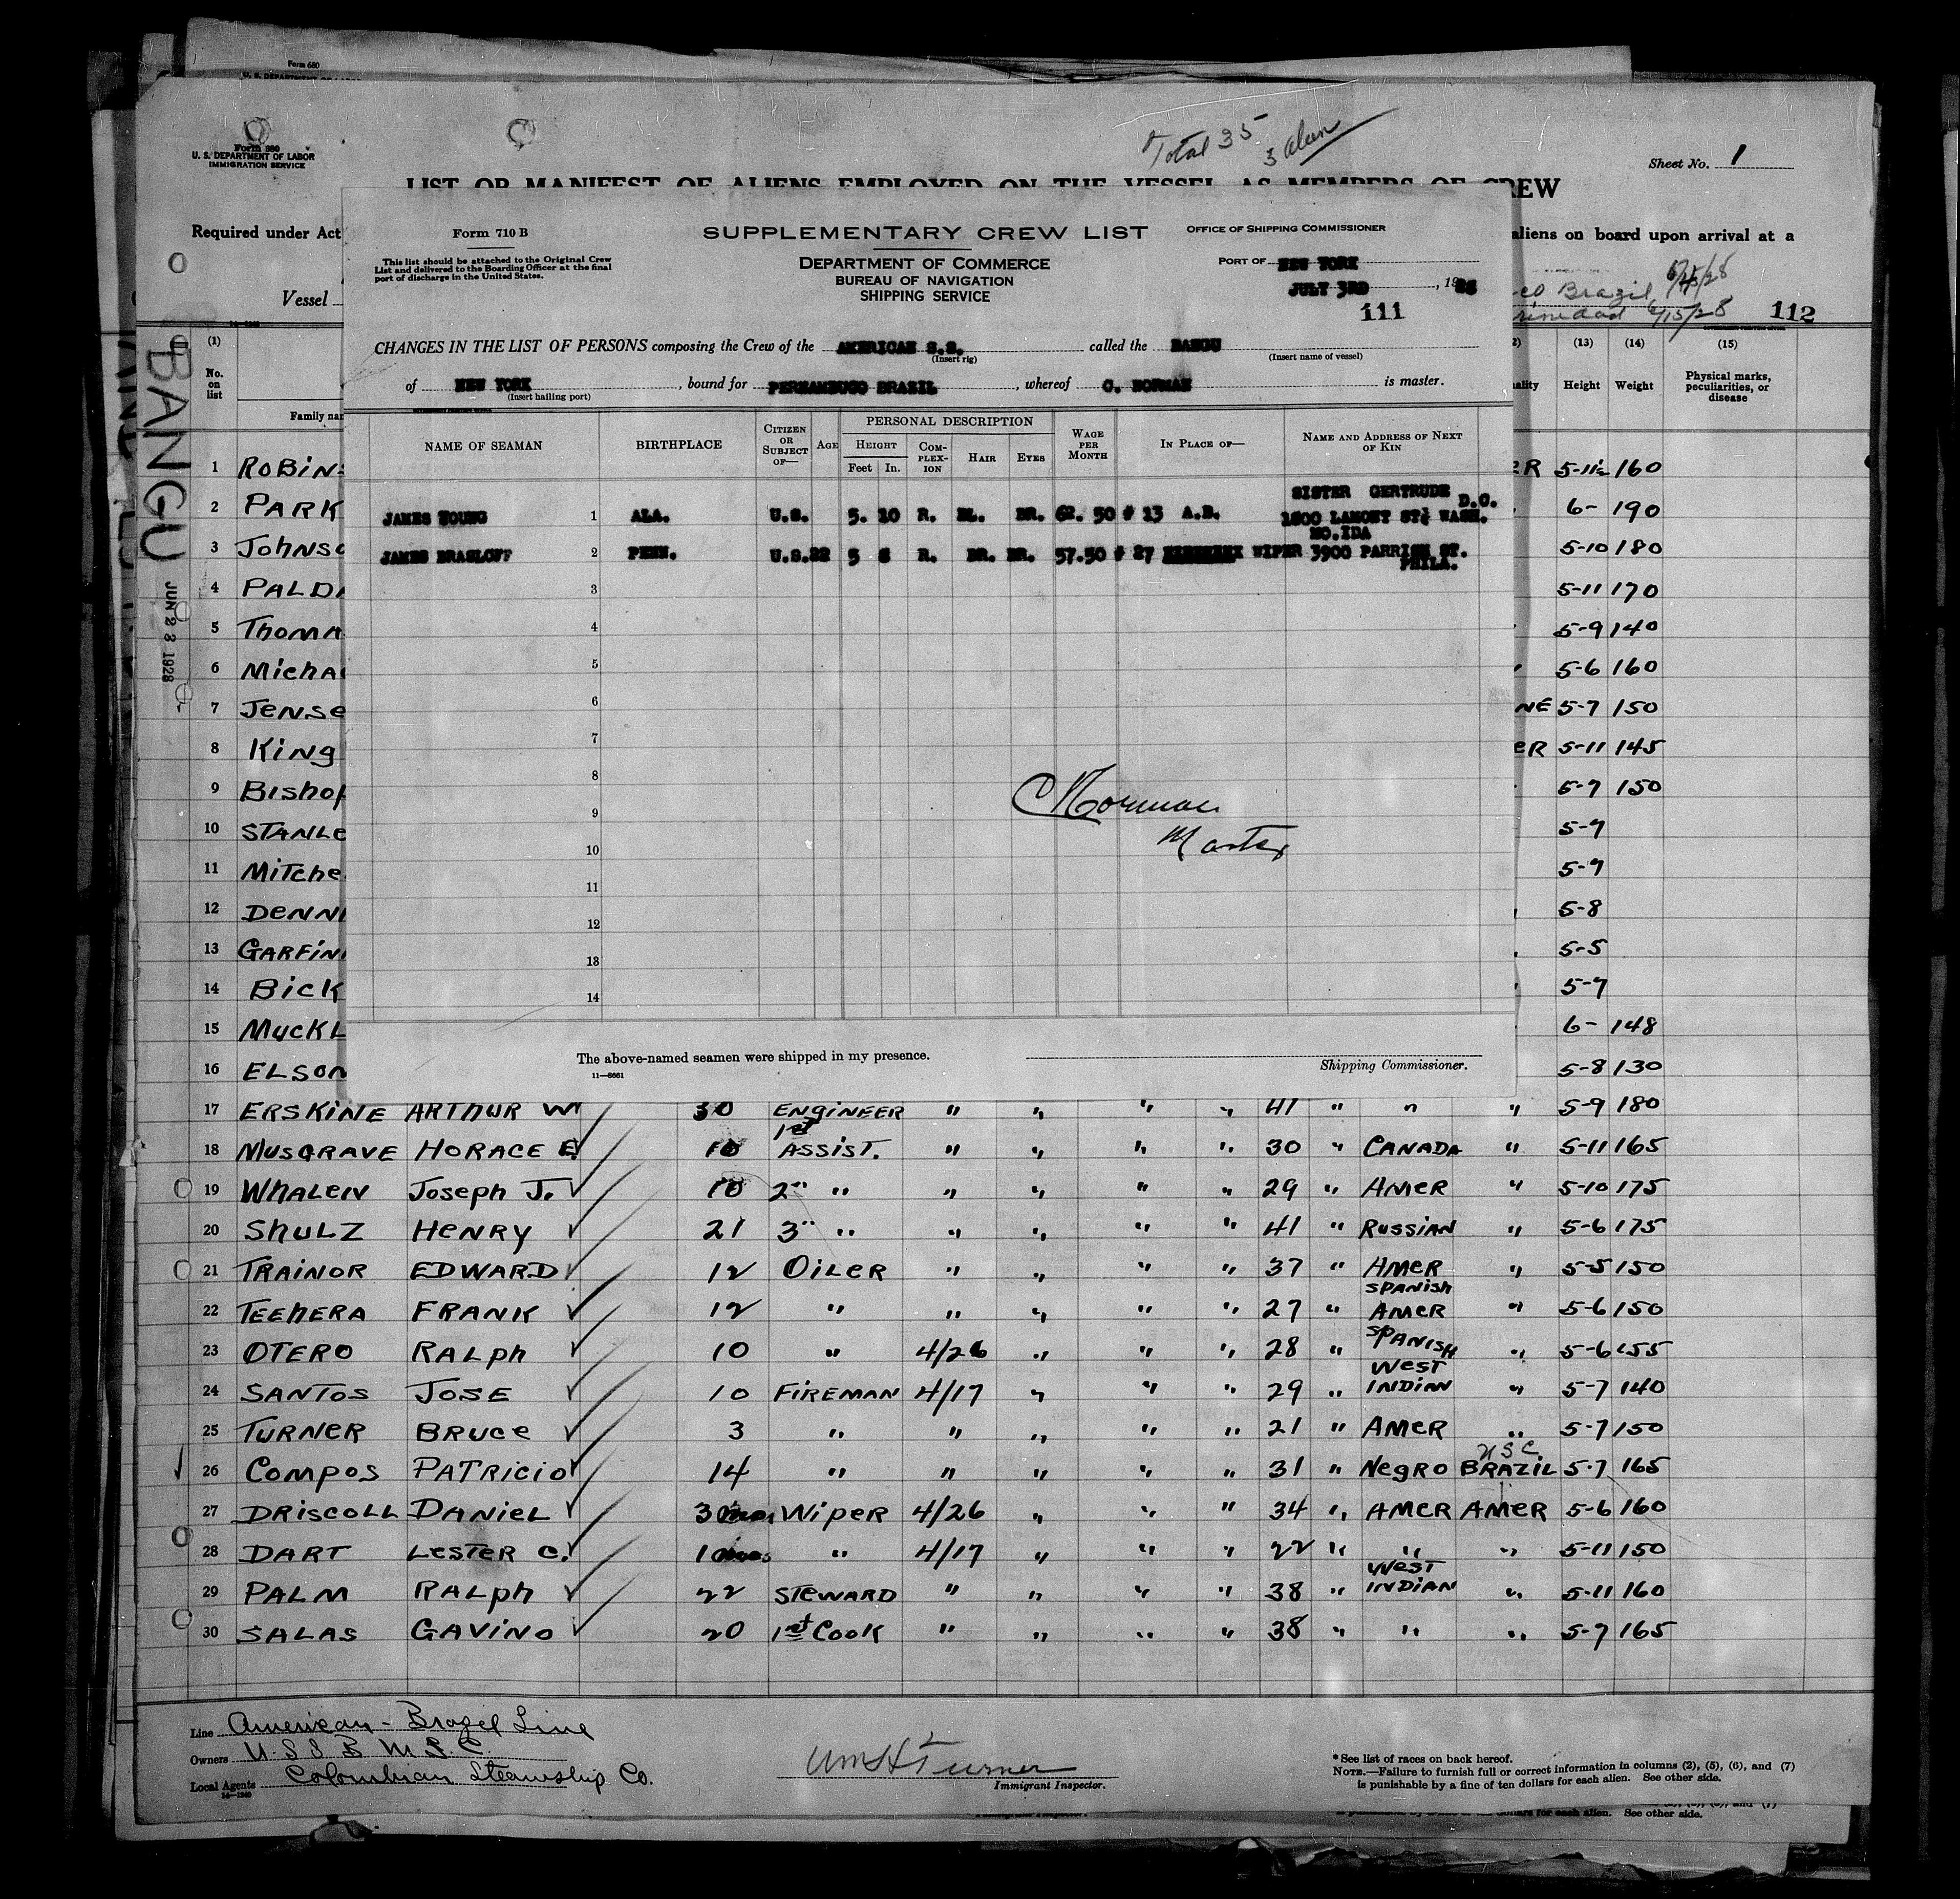 Form 680
Form 680
U. S. DEPARTMENT OF LABOR
IMMIGRATION SERVICE
Total 35
3 alien
Sheet No. 1
LIST OR MANIFEST OF ALIENS EMPLOYED ON THE VESSEL AS MEMBERS OF CREW
Required under Act
aliens on board upon arrival at a
Vessel
Brazil,
6/15/28
112
BANGU
JUN 23 1928
Form 710 B
This list should be attached to the Original Crew
List and delivered to the Boarding Officer at the final
port of discharge in the United States.
SUPPLEMENTARY CREW LIST
DEPARTMENT OF COMMERCE
BUREAU OF NAVIGATION
SHIPPING SERVICE
OFFICE OF SHIPPING COMMISSIONER
PORT OF NEW YORK
JULY 3RD, 19
111
CHANGES IN THE LIST OF PERSONS composing the Crew of the AMERICAN S.S. called the BANGU
(Insert rig) (Insert name of vessel)
of NEW YORK, bound for PERNAMBUCO BRAZIL, whereof C. NORMAN is master.
(Insert hailing port)
NAME OF SEAMAN BIRTHPLACE CITIZEN OR SUBJECT OF— AGE PERSONAL DESCRIPTION HEIGHT Feet In. COMPLEXION HAIR EYES WAGE PER MONTH IN PLACE OF— NAME AND ADDRESS OF NEXT OF KIN
SISTER GERTRUDE
JAMES YOUNG 1 ALA. U.S. 5. 10 R. BL. BR. 62. 50 # 13 A.B. 1800 LAMONT ST; WASH. D.C.
MO.IDA
JAMES BRASLOFF 2 PENN. U.S. 22 5 8 R. BR. BR. 57.50 # 27 WIPER 3900 PARRISH ST.
PHILA.
3
4
5
6
7
8
9
10
11
12
13
14
C Norman
Master
The above-named seamen were shipped in my presence.
11—8661
Shipping Commissioner.
(1) No. on list
Family nam
(13) Height (14) Weight (15) Physical marks, peculiarities, or disease
1 ROBINS 5-11½ 160
2 PARK 6- 190
3 JOHNSO 5-10 180
4 PALD 5-11 170
5 THOMA 5-9 140
6 MICHA 5-6 160
7 JENSE 5-7 150
8 KING 5-11 145
9 BISHOP 5-7 150
10 STANLE 5-7
11 MITCHE 5-7
12 DENNI 5-8
13 GARFIN 5-5
14 BICK 5-7
15 MUCKL 6- 148
16 ELSON 5-8 130
17 ERSKINE ARTHUR W 30 ENGINEER " " " " 41 " " " 5-9 180
18 MUSGRAVE HORACE E. 10 1st ASSIST. " " " " 30 " CANADA " 5-11 165
19 WHALEN JOSEPH J. 10 2" " " " " " 29 " AMER " 5-10 175
20 SHULZ HENRY 21 3" " " " " " 41 " RUSSIAN " 5-6 175
21 TRAINOR EDWARD 12 OILER " " " " 37 " AMER " 5-5 150
22 TEEHERA FRANK 12 " " " " " 27 " SPANISH AMER " 5-6 150
23 OTERO RALPH 10 " 4/26 " " " 28 " SPANISH " 5-6 155
24 SANTOS JOSE 10 FIREMAN 4/17 " " " 29 " WEST INDIAN " 5-7 140
25 TURNER BRUCE 3 " " " " " 21 " AMER " 5-7 150
USC
26 COMPOS PATRICIO 14 " " " " " 31 " NEGRO BRAZIL 5-7 165
27 DRISCOLL DANIEL 3 WIPER 4/26 " " " 34 " AMER AMER 5-6 160
28 DART LESTER C. 10 " 4/17 " " " 22 " " " 5-11 150
29 PALM RALPH 22 STEWARD " " " " 38 " WEST INDIAN " 5-11 160
30 SALAS GAVINO 20 1st COOK " " " " 38 " " " 5-7 165
Line American - Brazil Line
Owners U. S. S. B. M. F. C.
Local Agents Colombian Steamship Co.
Wm H Turner
Immigrant Inspector.
*See list of races on back hereof.
NOTE.—Failure to furnish full or correct information in columns (2), (5), (6), and (7)
is punishable by a fine of ten dollars for each alien. See other side.